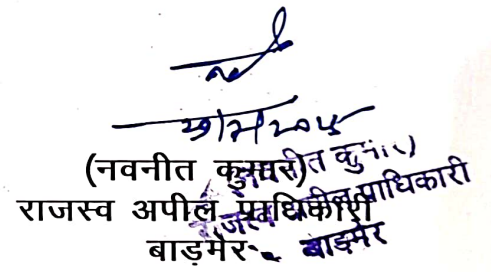 (नवनीत कुमार)
राजस्व अपील प्राधिकारी
बाड़मेर
नीत कुमार)
राजस्व अपील प्राधिकारी
बाड़मेर